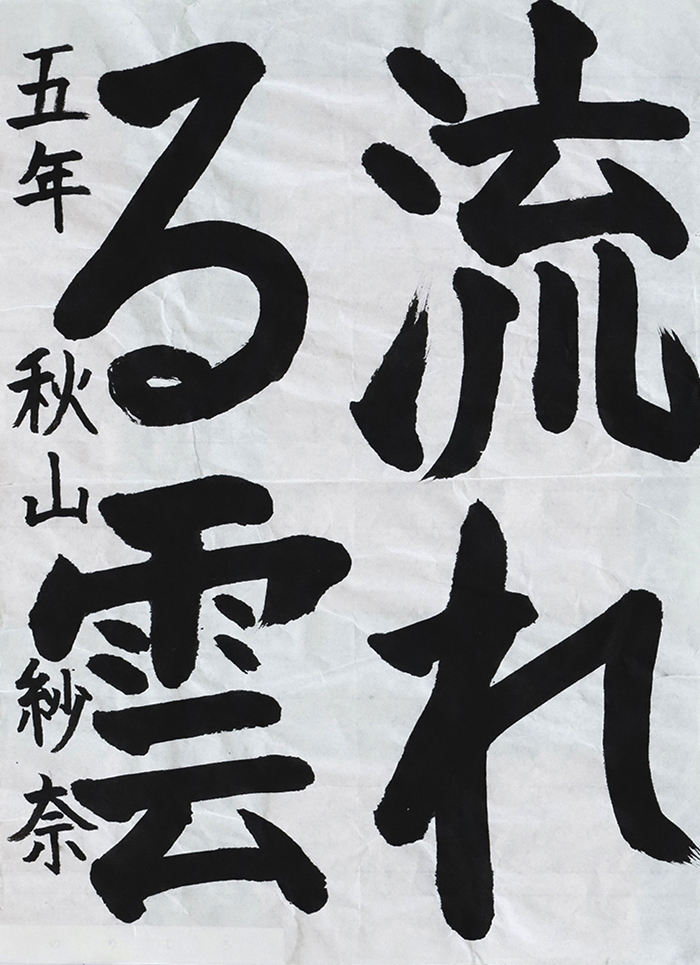 流れ
る雲
五年 秋山紗奈